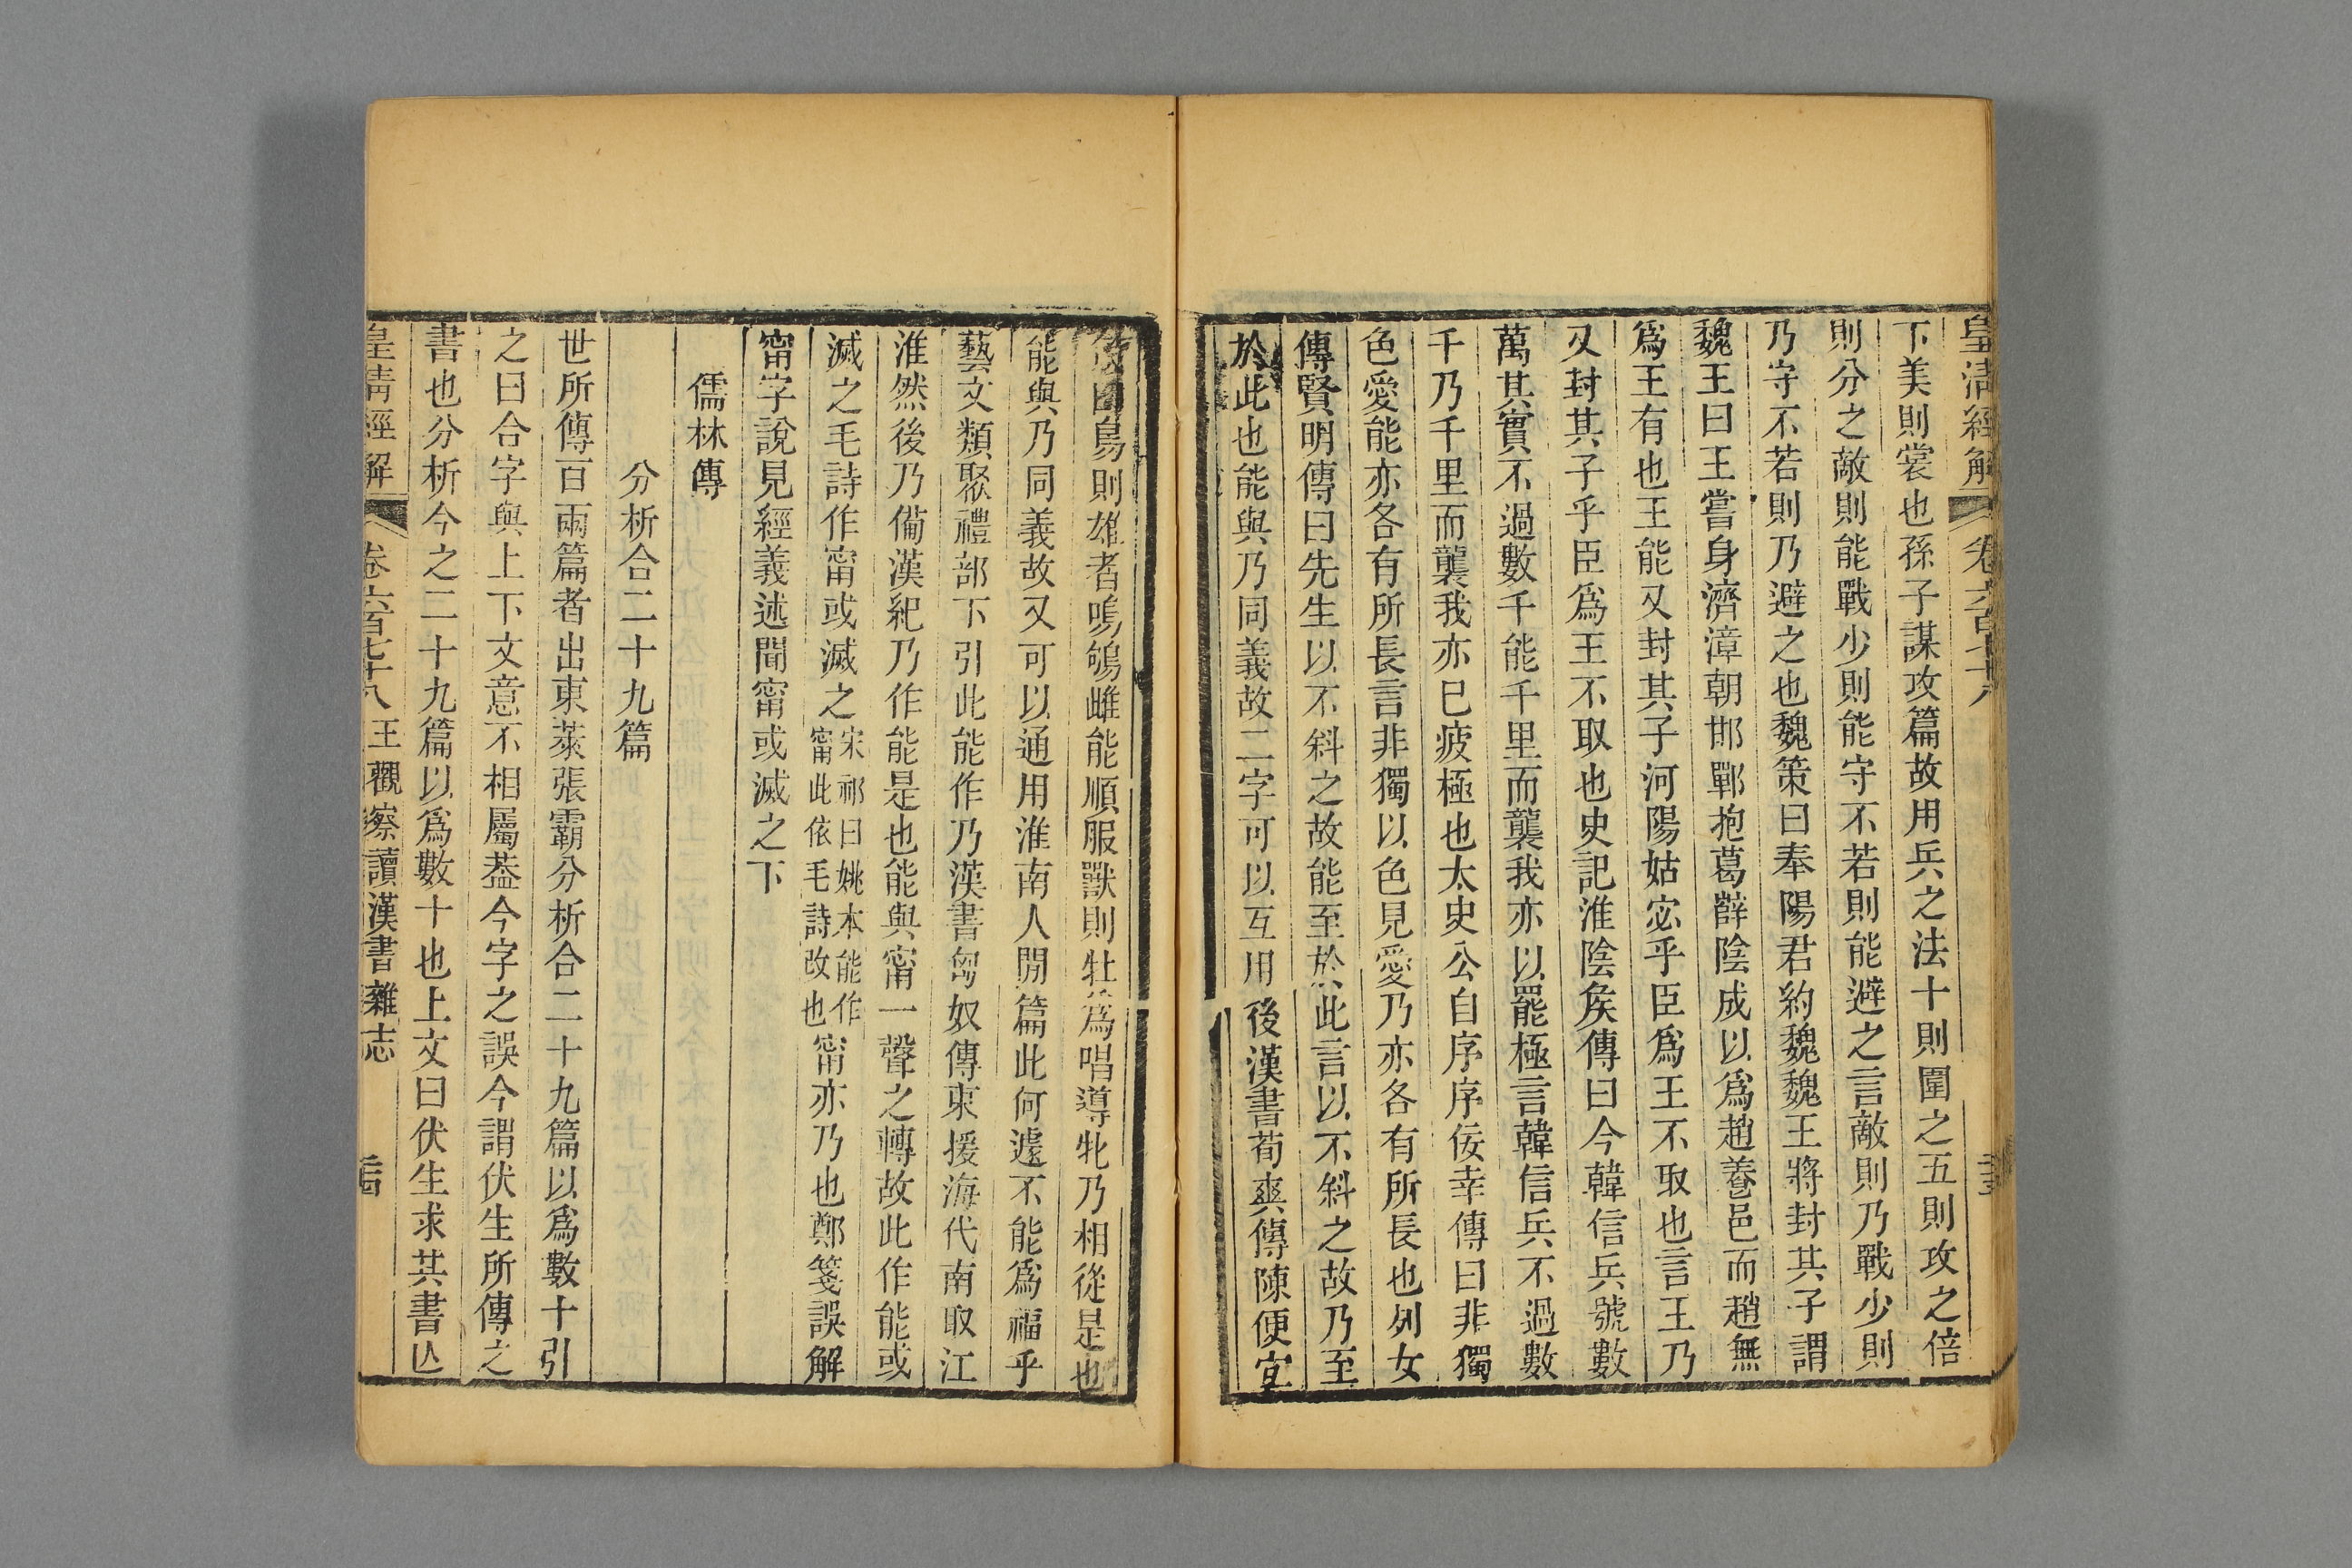 皇清經解
卷六百七十八
下美則裳也孫子謀攻篇故用兵之法十則圍之五則攻之倍
則分之敵則能戰少則能守不若則能避之言敵則乃戰少則
乃守不若則乃避之也魏策曰奉陽君約魏魏王將封其子謂
魏王曰王嘗身濟漳朝邯鄲抱葛薛陰成以爲趙養邑而趙無
爲王有也王能又封其子河陽姑宓乎臣爲王不取也言王乃
又封其子乎臣爲王不取也史記淮陰矦傳曰今韓信兵號數
萬其實不過數千能千里而襲我亦以罷極言韓信兵不過數
千乃千里而襲我亦已疲極也太史公自序序佞幸傳曰非獨
色愛能亦各有所長言非獨以色見愛乃亦各有所長也列女
傳賢明傳曰先生以不斜之故能至於此言以不斜之故乃至
於此也能與乃同義故二字可以互用後漢書荀爽傳陳便宜
圖鳥則雄者鳴鴝雌能順服獸則牡爲唱導牝乃相從是也
能與乃同義故又可以通用淮南人閒篇此何遽不能爲福乎
藝文類聚禮部下引此能作乃漢書匈奴傳東援海代南取江
淮然後乃備漢紀乃作能是也能與甯一聲之轉故此作能或
滅之毛詩作甯或滅之宋祁曰姚本能作甯此依毛詩改也甯亦乃也鄭箋誤解
甯字說見經義述聞甯或滅之下
儒林傳
分析合二十九篇
世所傳百兩篇者出東萊張霸分析合二十九篇以爲數十引
之曰合字與上下文意不相屬葢今字之誤今謂伏生所傳之
書也分析今之二十九篇以爲數十也上文曰伏生求其書亾
皇清經解
卷六百七十八
王觀察讀漢書雜志